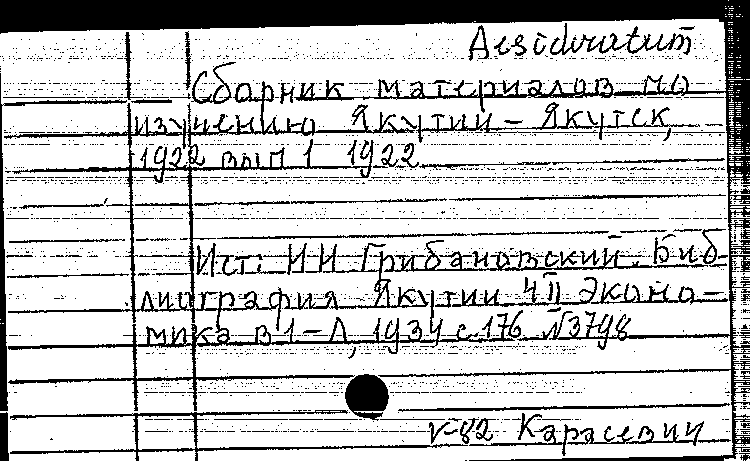 Desideratum
Сборник материалов по
изучению Якутии – Якутск,
1922 вып 1 1922
Ист: Н Н Грибановский. Биб-
лиография Якутии ч II Эконо-
мика в 1 – Л, 1934 с. 176 №3798
V-82 Карасевич